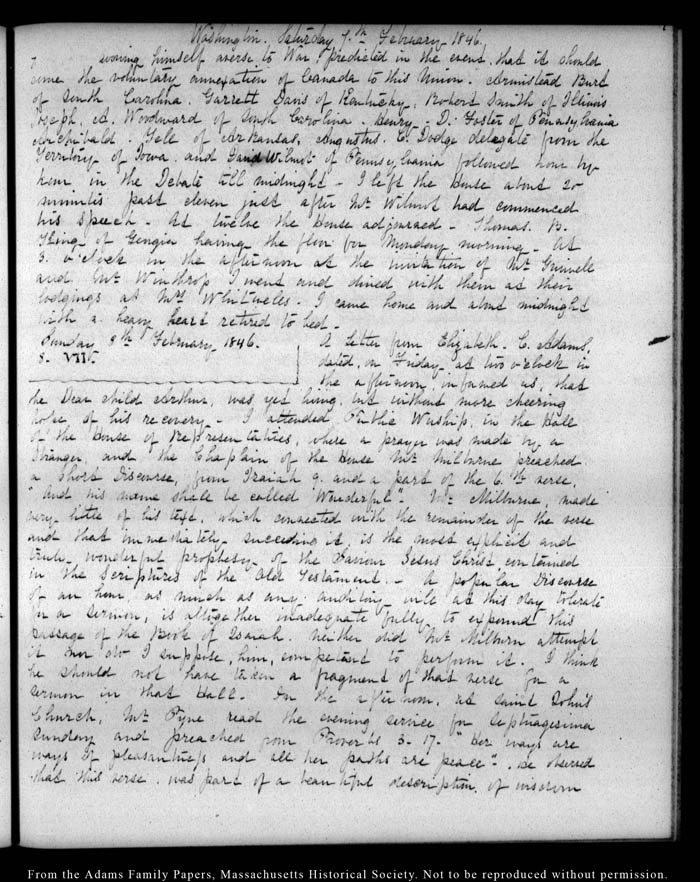 Washington. Saturday 7.th February 1846.
owning himself averse to War, predicted in the event, that it should
come the voluntary annexation of Canada to this Union. Armistead Burt
of South Carolina. Garrett Davis of Kentucky, Robert Smith of Illinois
Joseph. A. Woodward of South Carolina. Henry. D. Foster of Pennsylvania
Archibald. Yell of Arkansas, Augustus. C. Dodge delegate from the
Territory of Iowa. and David Wilmot of Pennsylvania followed hour by
hour in the Debate till midnight – I left the House about 20
minutes past eleven just after Mr. Wilmot had commenced
his speech – At twelve the House adjourned – Thomas. B.
King of Georgia having the floor for Monday morning – At
5. o'clock in the afternoon at the invitation of Mr. Grinnell
and Mr. Winthrop I went and dined with them at their
lodgings at Mrs Whitwells. I came home and about midnight
with a heavy heart retired to bed –
Sunday 8.th February 1846.
8. VIII.
A Letter from Elizabeth. C. Adams,
dated, on Friday at two o'clock in
the afternoon, informed us, that
the Dear child Arthur, was yet living, but without more cheering
hope, of his recovery – I attended, Public Worship, in the Hall
of the House of Representatives, where a prayer was made by a
Stranger, and the Chaplain of the House Mr. Milburne preached
a short Discourse, from Isaiah 9. and a part of the 6.th verse,
"And his name shall be called Wonderful". Mr. Milburne, made
very little of his text, which connected with the remainder of the verse
and that immediately succeeding it, is the most explicit and
truly wonderful prophesy of the Saviour Jesus Christ, contained
in the Scriptures of the Old Testament. – A popular Discourse
of an hour, as much as any auditory will at this day tolerate
for a sermon, is altogether inadequate fully to expound this
passage of the Book of Isaiah. Neither did Mr. Milburn attempt
it nor do I suppose, him, competent to perform it. I think
he should not have taken a fragment of that verse for a
sermon in that Hall. In the afternoon, at Saint John's
Church, Mr. Pyne read the evening service for Septuagesima
Sunday and preached from Proverbs 3. 17. "Her ways are
ways of pleasantness and all her paths are peace". He observed
that this verse was part of a beautiful description of wisdom
From the Adams Family Papers, Massachusetts Historical Society. Not to be reproduced without permission.